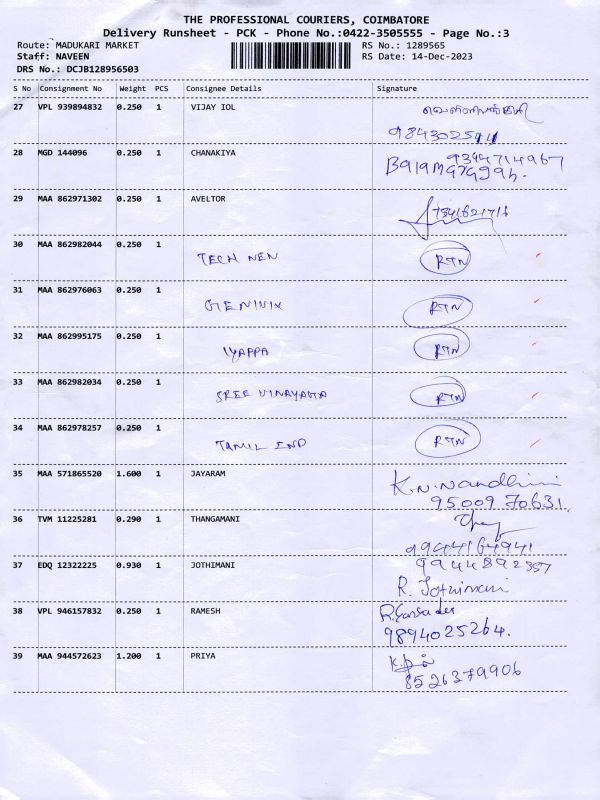 THE PROFESSIONAL COURIERS, COIMBATORE
Delivery Runsheet - PCK - Phone No.:0422-3505555 - Page No.:3
Route: MADUKARI MARKET RS No.: 1289565
Staff: NAVEEN RS Date: 14-Dec-2023
DRS No.: DCJB128956503
S No Consignment No Weight PCS Consignee Details Signature
27 VPL 939894832 0.250 1 VIJAY IOL
28 MGD 144096 0.250 1 CHANAKIYA 9344714967
29 MAA 862971302 0.250 1 AVELTOR
30 MAA 862982044 0.250 1 TECH NEN RTN
31 MAA 862976063 0.250 1 GENIVIX RTN
32 MAA 862995175 0.250 1 IYAPPA RTN
33 MAA 862982034 0.250 1 SREE VINAYAGA RTN
34 MAA 862978257 0.250 1 TAMIL IND RTN
35 MAA 571865520 1.600 1 JAYARAM K.N.Nandhini
95009 70631
36 TVM 11225281 0.290 1 THANGAMANI
9944164941
37 EDQ 12322225 0.930 1 JOTHIMANI 9944892357
R. Jothimani
38 VPL 946157832 0.250 1 RAMESH
9894025264.
39 MAA 944572623 1.200 1 PRIYA
8526379906